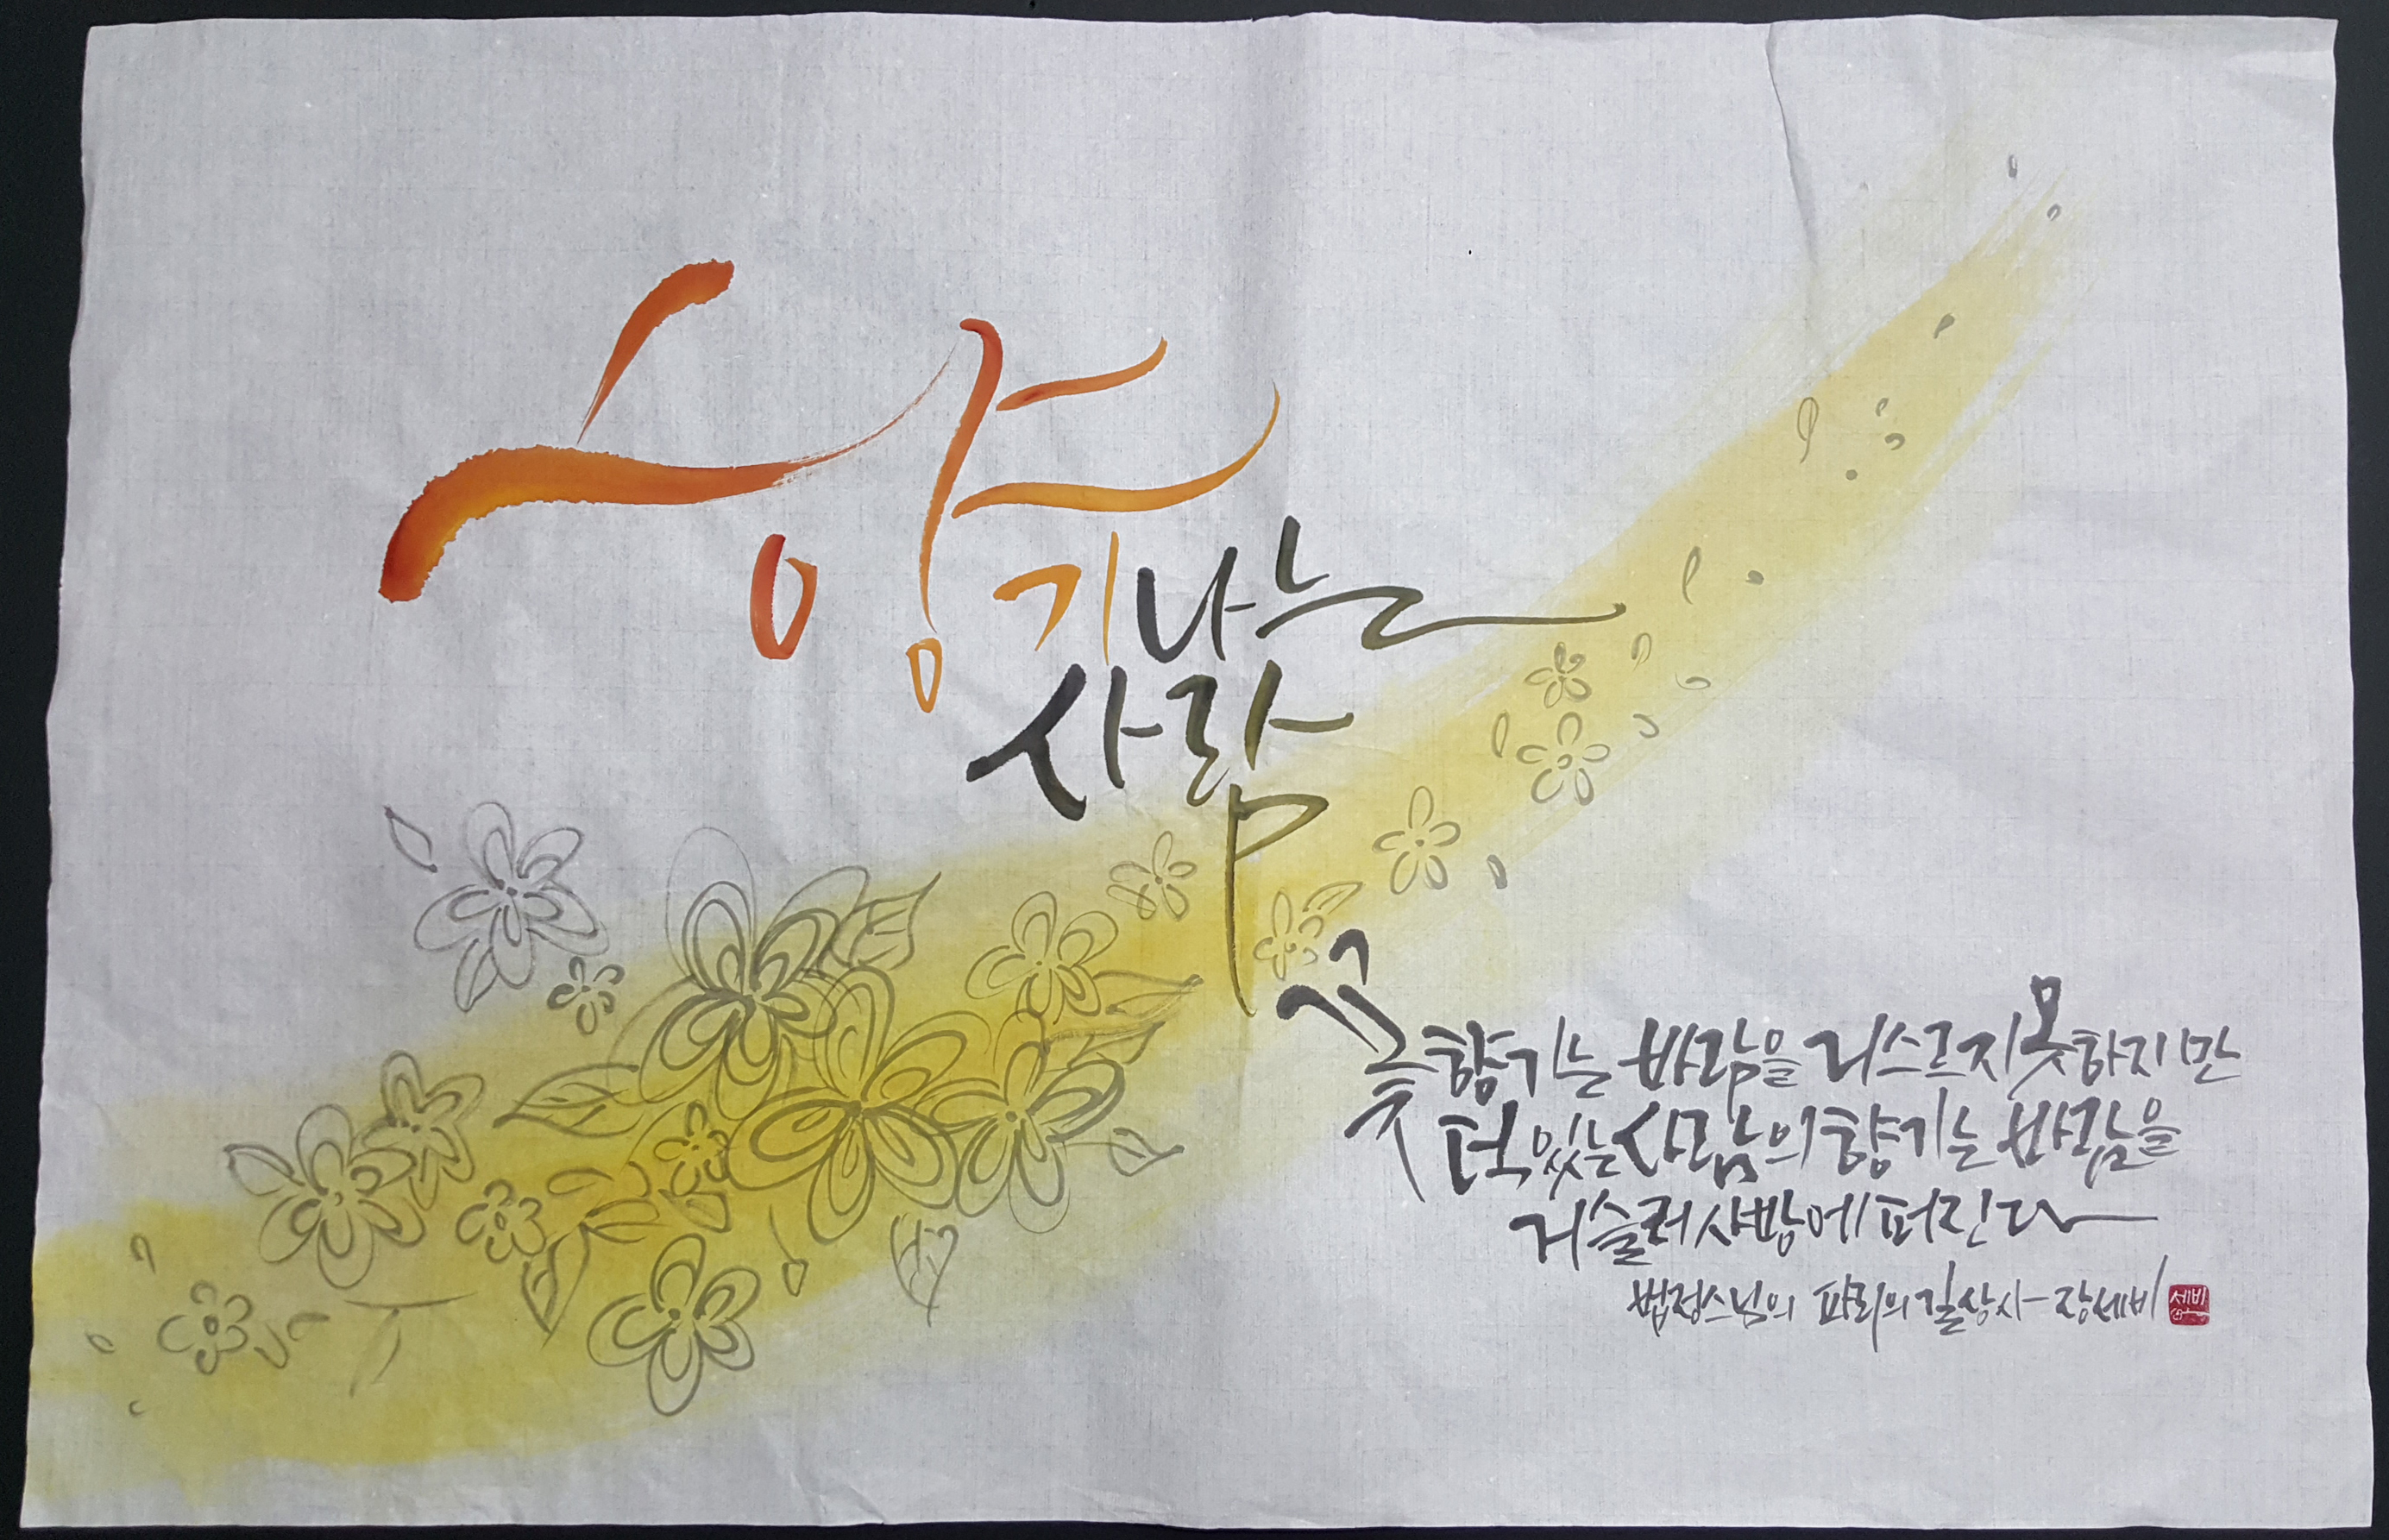 향기나는
사람
꽃향기는 바람을 거스르지 못하지만
덕있는 사람의 향기는 바람을
거슬러 사방에 퍼진다
법정스님의 파리의 길상사 - 장세비
세비